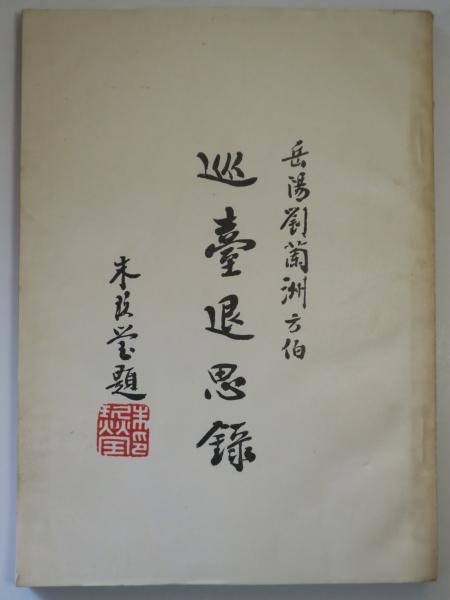 岳陽劉蘭洲方伯
巡臺退思錄
朱玖瑩題
朱玖瑩印